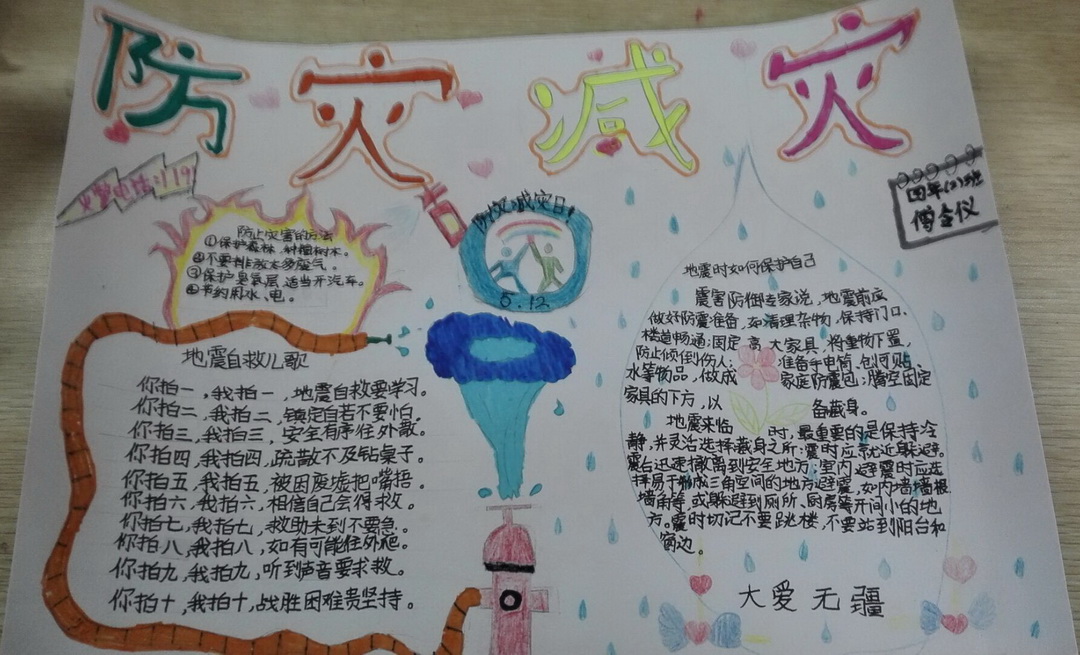 防灾减灾
火警电话:119
四年(2)班
傅全仪
防灾减灾日!
5.12
防止灾害的方法
①保护森林,种植树木。
②不要排放太多废气。
③保护臭氧层,适当开汽车。
④节约用水、电。
地震自救儿歌
你拍一,我拍一,地震自救要学习。
你拍二,我拍二,镇定自若不要怕。
你拍三,我拍三,安全有序往外散。
你拍四,我拍四,疏散不及钻桌子。
你拍五,我拍五,被困废墟把嘴捂。
你拍六,我拍六,相信自己会得救。
你拍七,我拍七,救助未到不要急。
你拍八,我拍八,如有可能往外爬。
你拍九,我拍九,听到声音要求救。
你拍十,我拍十,战胜困难贵坚持。
地震时如何保护自己
震害防御专家说,地震前应
做好防震准备,如清理杂物,保持门口、
楼道畅通;固定高大家具,将重物下置,
防止倾倒伤人;准备手电筒、创可贴
水等物品,做成家庭防震包;腾空固定
家具的下方,以备藏身。
地震来临时,最重要的是保持冷
静,并灵活选择藏身之所:震时应就近躲避。
震后迅速撤离到安全地方;室内避震时应选
择易于形成三角空间的地方避震,如内墙墙根
墙角等,或躲避到厕所、厨房等开间小的地
方。震时切记不要跳楼,不要站到阳台和
窗边。
大爱无疆